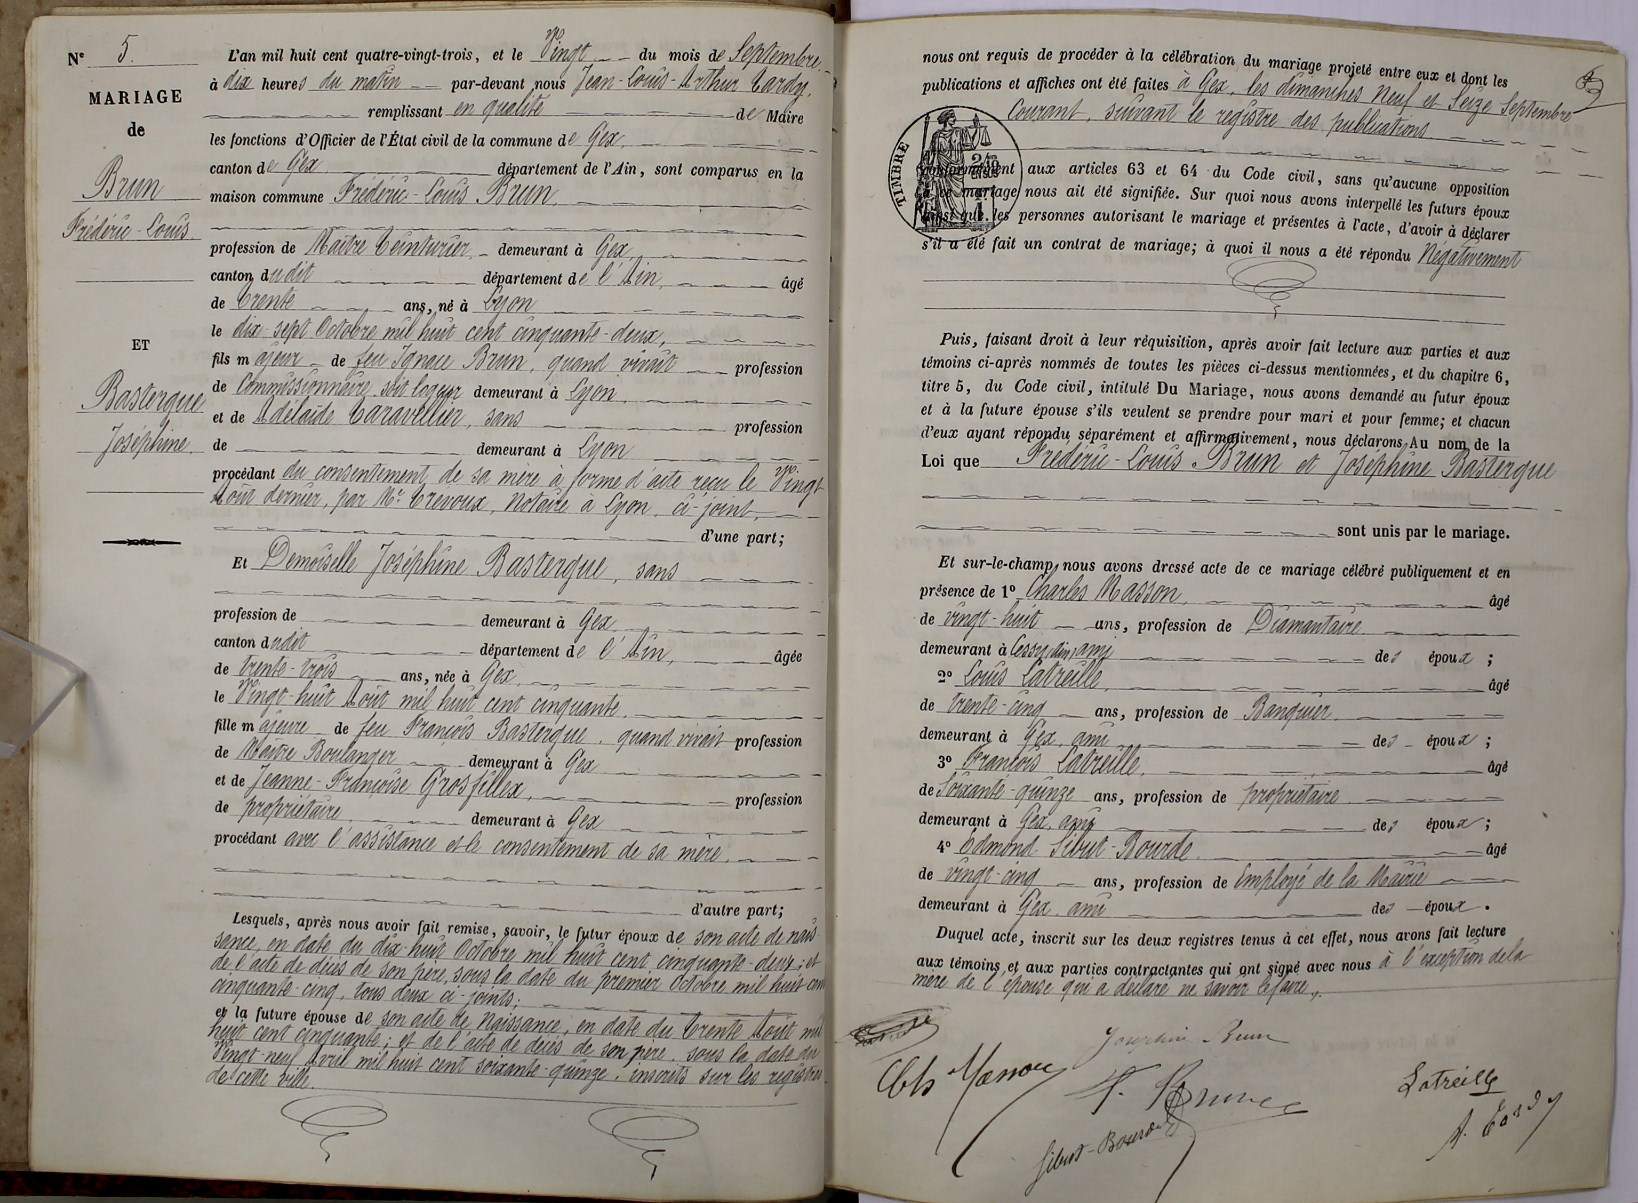 N° 5.
MARIAGE
de
Brun
Frédéric-Louis
ET
Basterque
Joséphine.
L'an mil huit cent quatre-vingt-trois, et le Vingt du mois de Septembre
à dix heures du matin par-devant nous Jean-Louis-Arthur Tardy,
remplissant en qualité de Maire
les fonctions d'Officier de l'État civil de la commune de Gex,
canton de Gex département de l'Ain, sont comparus en la
maison commune Frédéric-Louis Brun,
profession de Maître Teinturier, demeurant à Gex,
canton dudit département de l'Ain, âgé
de trente ans, né à Lyon
le dix-sept Octobre mil huit cent cinquante-deux,
fils majeur de feu Ignace Brun, quand vivait profession
de Commissionnaire, demeurant à Lyon
et de Adélaïde Caravellier, sans profession
de demeurant à Lyon
procédant du consentement de sa mère à forme d'acte reçu le Vingt
Août dernier, par Mr. Crevoux, Notaire à Lyon, ci-joint,
d'une part;
Et Demoiselle Joséphine Basterque, sans
profession de demeurant à Gex
canton dudit département de l'Ain, âgée
de trente-trois ans, née à Gex,
le Vingt-huit Août mil huit cent cinquante,
fille majeure de feu François Basterque, quand vivait profession
de Maître Boulanger demeurant à Gex
et de Jeanne-Françoise Grosfillex, profession
de propriétaire, demeurant à Gex
procédant avec l'assistance et le consentement de sa mère,
d'autre part;
Lesquels, après nous avoir fait remise, savoir, le futur époux de son acte de nais
sance, en date du dix-huit Octobre mil huit cent cinquante-deux; et
de l'acte de décès de son père, sous la date du premier Octobre mil huit cent
cinquante-cinq, tous deux ci-joints;
et la future épouse de son acte de Naissance, en date du trente Août mil
huit cent cinquante; et de l'acte de décès de son père, sous la date du
Vingt-neuf Avril mil huit cent soixante-quinze, inscrits sur les registres
de cette ville.
nous ont requis de procéder à la célébration du mariage projeté entre eux et dont les
publications et affiches ont été faites à Gex, les dimanches Neuf et Seize Septembre
Courant, suivant le registre des publications
TIMBRE
conformément aux articles 63 et 64 du Code civil, sans qu'aucune opposition
à ce mariage nous ait été signifiée. Sur quoi nous avons interpellé les futurs époux
ainsi que les personnes autorisant le mariage et présentes à l'acte, d'avoir à déclarer
s'il a été fait un contrat de mariage; à quoi il nous a été répondu Négativement
Puis, faisant droit à leur réquisition, après avoir fait lecture aux parties et aux
témoins ci-après nommés de toutes les pièces ci-dessus mentionnées, et du chapitre 6,
titre 5, du Code civil, intitulé Du Mariage, nous avons demandé au futur époux
et à la future épouse s'ils veulent se prendre pour mari et pour femme; et chacun
d'eux ayant répondu séparément et affirmativement, nous déclarons Au nom de la
Loi que Frédéric-Louis Brun et Joséphine Basterque
sont unis par le mariage.
Et sur-le-champ, nous avons dressé acte de ce mariage célébré publiquement et en
présence de 1° Charles Masson, âgé
de vingt-huit ans, profession de Diamantaire
demeurant à Cessy, (Ain) ami des époux;
2° Louis Latreille, âgé
de trente-cinq ans, profession de Banquier
demeurant à Gex, ami des époux;
3° François Latreille, âgé
de Soixante-quinze ans, profession de propriétaire
demeurant à Gex, ami des époux;
4° Edmond Sibut-Bourde âgé
de vingt-cinq ans, profession de Employé de la Mairie
demeurant à Gex, ami des époux.
Duquel acte, inscrit sur les deux registres tenus à cet effet, nous avons fait lecture
aux témoins et aux parties contractantes qui ont signé avec nous à l'exception de la
mère de l'épouse qui a déclaré ne savoir le faire,
Joséphine Brun
Chs Masson
F. Brun
Latreille
Sibut-Bourde
A. Tardy